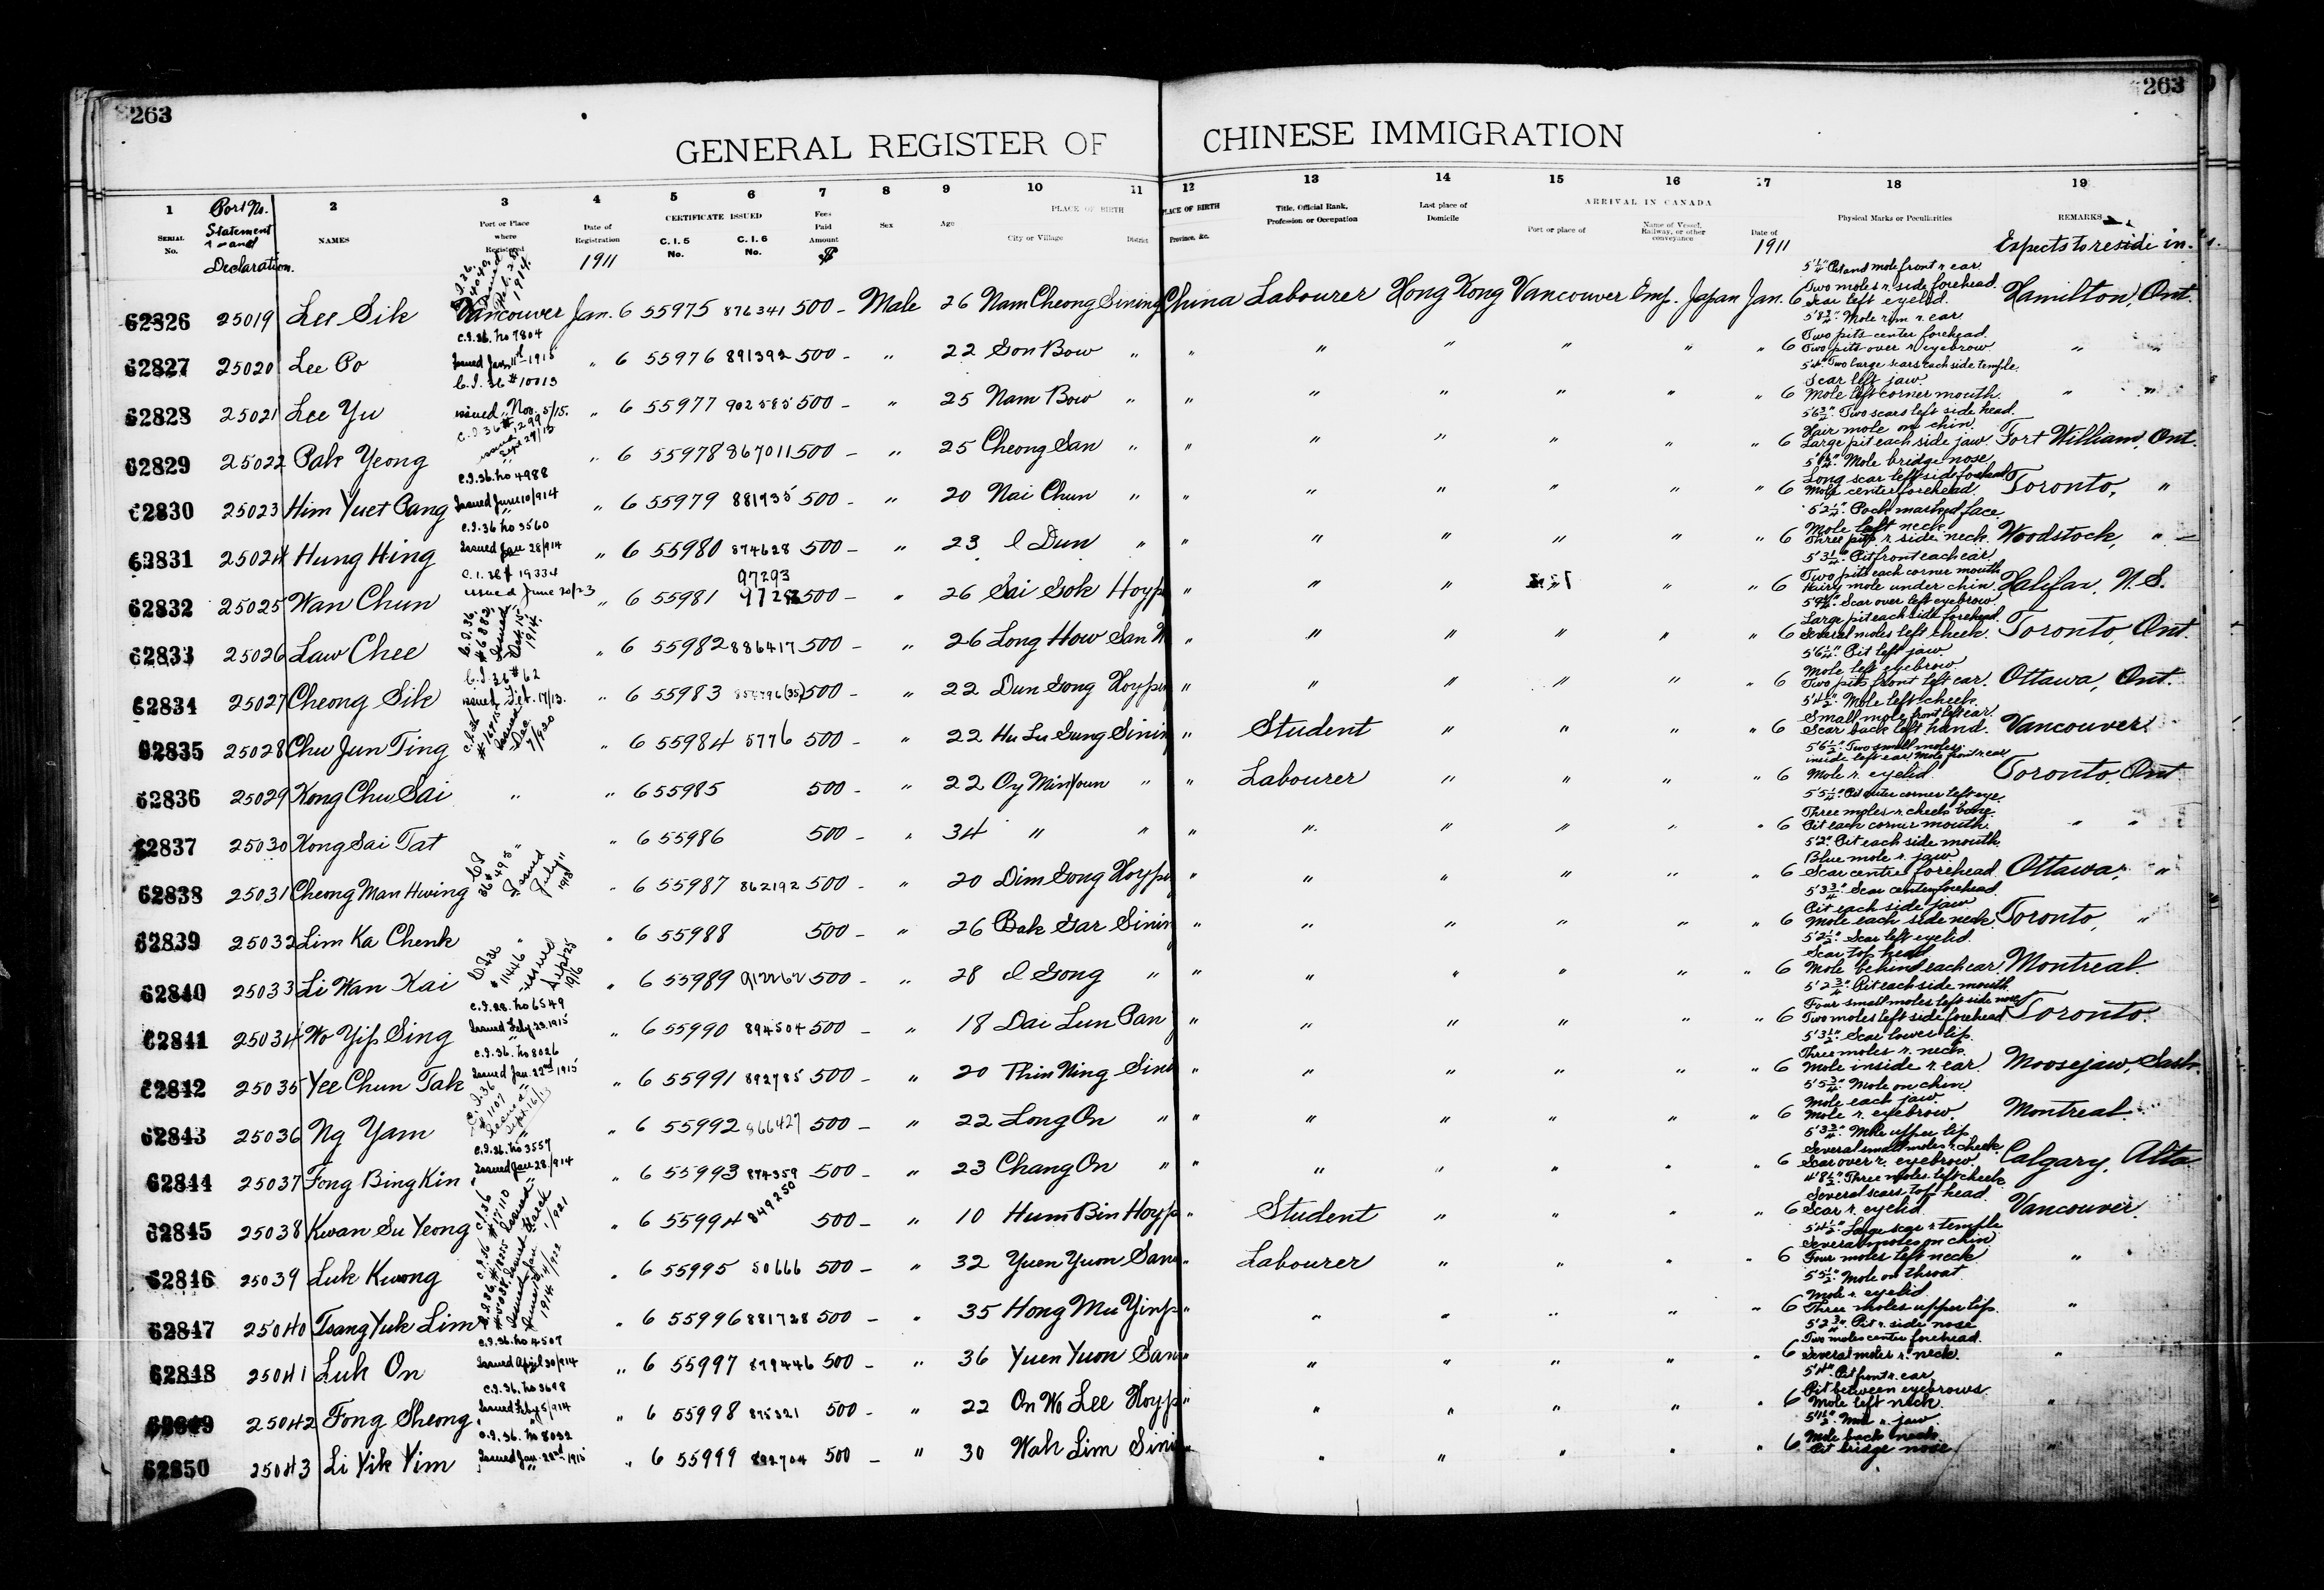 263
263
GENERAL REGISTER OF CHINESE IMMIGRATION
1 2 3 4 5 6 7 8 9 10 11 12 13 14 15 16 17 18 19
SERIAL No.
Port No. Statement and Declaration.
NAMES
Port or Place where Registered
Date of Registration
1911
CERTIFICATE ISSUED
C. I. 5 No.
C. I. 6 No.
Fees Paid Amount
$
Sex
Age
PLACE OF BIRTH
City or Village
District
PLACE OF BIRTH
Province, &c.
Title, Official Rank, Profession or Occupation
Last place of Domicile
ARRIVAL IN CANADA
Port or place of
Name of Vessel, Railway, or other conveyance
Date of
1911
Physical Marks or Peculiarities
REMARKS
Expects to reside in.
62826 25019 Lee Sik Vancouver Jan. 6 55975 876341 500 - Male 26 Nam Cheong Sining China Labourer Hong Kong Vancouver Emp. Japan Jan. 6 5'1¼" Pit and mole front r. ear. Two moles r. side forehead. Scar left eyelid. Hamilton, Ont.
62827 25020 Lee Po C.I.36. No 7804 Issued Jan 11th-1915 " 6 55976 891392 500 - " 22 Son Bow " " " " " " " 6 5'8¾" Mole rim r. ear. Two pits center forehead. Two pits over r. eyebrow " "
62828 25021 Lee Yu C.I. 36 # 10013 issued Nov. 5/15. " 6 55977 902585 500 - " 25 Nam Bow " " " " " " " 6 5'4" Two large scars each side temple. Scar left jaw. Mole left corner mouth. " "
62829 25022 Pak Yeong C.I. 36 # 1299 issued Sept 29/13 " 6 55978 867011 500 - " 25 Cheong San " " " " " " " 6 Two scars left side head. Hair mole on chin. Large pit each side jaw. Fort William, Ont.
62830 25023 Him Yuet Pang C.I.36. No 4988 Issued June 10/914 " 6 55979 881935 500 - " 20 Nai Chun " " " " " " " 6 Mole bridge nose. Long scar left side forehead. Mole center forehead. Toronto, "
62831 25024 Hung Hing C.I.36 No 3560 Issued Jan 28/914 " 6 55980 874628 500 - " 23 I Dun " " " " " " " 6 5'2¼" Pock marked face. Mole left neck. Three pits r. side neck. Woodstock, "
62832 25025 Wan Chun C.I. 36 # 19334 issued June 20/23 " 6 55981 97293 500 - " 26 Sai Sok Hoyp " " " " " 6 5'3¼" Pit front each ear. Two pits each corner mouth. Hairy mole under chin. Halifax, N.S.
62833 25026 Law Chee C.I. 36. # 6882 Issued Oct. 15 1914. " 6 55982 886417 500 - " 26 Long How San " " " " " " 6 Scar over left eyebrow. Large pit each side forehead. Several moles left cheek. Toronto, Ont.
62834 25027 Cheong Sik C.I. 36 # 62 issued Feb. 17/13. " 6 55983 500 - " 22 Dun Gong Hoypin " " " " " " 6 5'6¼" Pit left jaw. Mole left eyebrow. Two pits front left ear. Ottawa, Ont.
62835 25028 Chu Jun Ting C.I.36 Issued Dec 7/920 " 6 55984 5776 500 - " 22 Hu Lu Gung Sinin " Student " " " " 6 5'4½" Mole left cheek. Small mole front left ear. Scar back left hand. Vancouver.
62836 25029 Kong Chu Sai " " 6 55985 500 - " 22 Oy Min Youn " " Labourer " " " " 6 5'6½" Two small moles inside left ear. Mole front r. ear. Mole r. eyelid. Toronto, Ont
62837 25030 Kong Sai Tat " 6 55986 500 - " 34 " " " " " " " " 6 5'5¼" Pit outer corner left eye. Three moles r. cheek bone. Pit each corner mouth. " "
62838 25031 Cheong Man Hwing C.I 36 # 495 Issued July 11 1918 " 6 55987 862192 500 - " 20 Dim Gong Hoypin " " " " " " 6 5'2" Pit each side mouth. Blue mole r. jaw. Scar center forehead. Ottawa, "
62839 25032 Lim Ka Chenk " " 6 55988 500 - " 26 Bak Sar Sinin " " " " " " 6 5'3¾" Scar center forehead. Pit each side jaw. Mole each side neck. Toronto, "
62840 25033 Li Wan Kai C.I.36 # 11446 issued Sept 25 1916 " 6 55989 912262 500 - " 28 I Gong " " " " " " " 6 5'2½" Scar left eyelid. Scar top head. Mole behind each ear. Montreal.
62841 25034 Wo Yip Sing No 6549 Issued Feby 23.1915 " 6 55990 894504 500 - " 18 Dai Lun Pan " " " " " " 6 5'2¾" Pit each side mouth. Four small moles left side nose. Two moles left side forehead. Toronto.
62842 25035 Yee Chun Tak C.I.36. No 8026 Issued Jan. 22nd 1915 " 6 55991 892785 500 - " 20 Thin Ning Sinin " " " " " " 6 5'3½" Scar lower lip. Three moles r. neck. Mole inside r. ear. Moosejaw, Sask.
62843 25036 Ng Yam C.I.36 # 1107 Issued Sept. 16/13 " 6 55992 866427 500 - " 22 Long On " " " " " " " 6 5'5¾" Mole on chin. Mole each jaw. Mole r. eyebrow. Montreal.
62844 25037 Fong Bing Kin C.I.36. No 3557 Issued Jan 28/914 " 6 55993 874359 500 - " 23 Chang On " " " " " " " 6 5'3¾" Mole upper lip. Several small moles r. cheek. Scar over r. eyebrow. Calgary, Alta
62845 25038 Kwan Su Yeong C.I.36 # 17110 Issued March 1/921 " 6 55994 849250 500 - " 10 Hum Bin Hoyp " Student " " " " 6 4'8½" Three moles left cheek. Several scars top head. Scar r. eyelid. Vancouver.
62846 25039 Luk Kwong " 6 55995 50666 500 - " 32 Yuen Yuon San " Labourer " " " " 6 5'4½" Large scar r. temple. Several moles on chin. Four moles left neck "
62847 25040 Tsang Yuk Lim " 6 55996 881728 500 - " 35 Hong Mu Yinp " " " " " " 6 5'5½" Mole on throat. Mole r. eyelid. Three moles upper lip. "
62848 25041 Luk On C.I.36. No 4507 Issued April 30/914 " 6 55997 879446 500 - " 36 Yuen Yuon San " " " " " " 6 5'2¾" Pit r. side nose. Two moles center forehead. Several moles r. neck. "
62849 25042 Fong Sheong C.I.36. No 3698 Issued Feby 5/914 " 6 55998 875321 500 - " 22 On Wo Lee Hoyp " " " " " " 6 5'4" Pit front r. ear. Pit between eyebrows. Mole left neck. "
62850 25043 Li Yik Yim C.I.36. No 8032 Issued Jan. 22nd 1915 " 6 55999 892704 500 - " 30 Wah Lim Sinin " " " " " " 6 Mole r. jaw. Mole back neck. Pit bridge nose. "